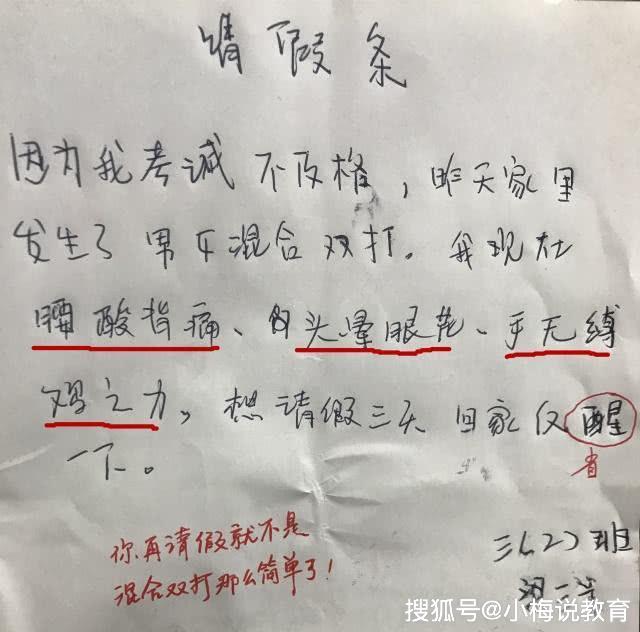 请假条
因为我考诫不及格，昨天家里
发生了男女混合双打。我现在
腰酸背痛、头晕眼花、手无缚
鸡之力，想请假三天回家反醒
省
一下。
你再请假就不是
混合双打那么简单了！
三(2)班
搜狐号@小梅说教育